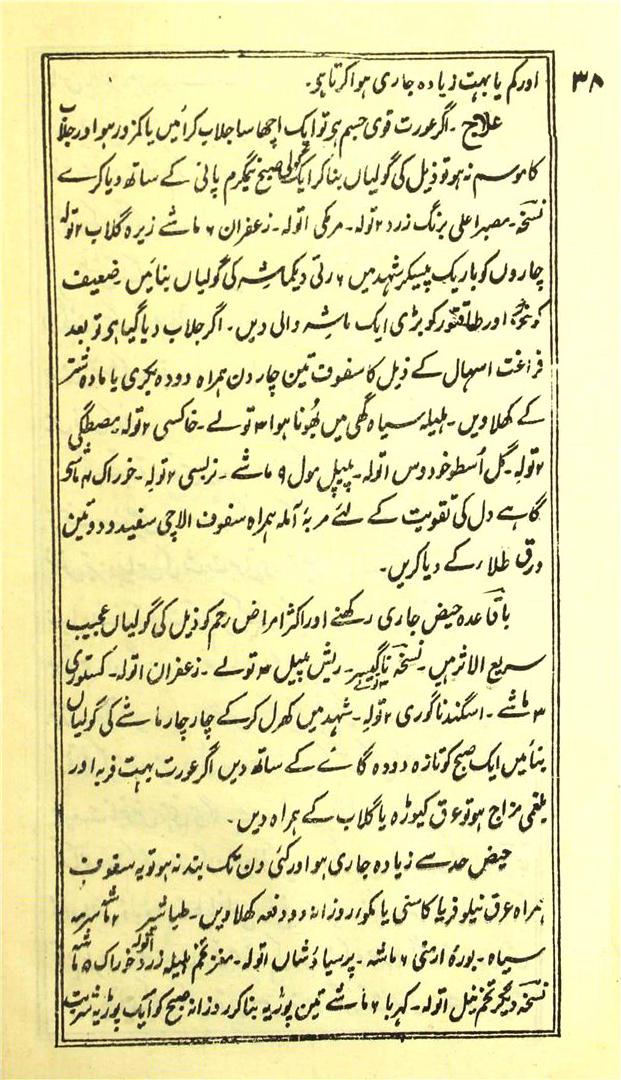 ۳۸
اور کم یا بہت زیادہ جاری ہوا کرتا ہو۔
علاج۔ اگر عورت قوی جسم ہو تو ایک اچھا سا جلاب کرائیں یا کمزور ہو اور جلاب
کا موسم نہ ہو تو ذیل کی گولیاں بنا کر ایک گولی صبح نیمگرم پانی کے ساتھ دیا کرے
نسخہ۔ مصبر اعلی برنگ زرد ۲ تولہ۔ مرمکی ۱ تولہ۔ زعفران ۶ ماشے زیرہ گلاب ۲ تولہ
چاروں کو باریک پیسکر شہد میں ۶ رتی و یکماشہ کی گولیاں بنائیں ضعیف
کو اور طاقتور کو بڑی ایک ماشہ والی دیں۔ اگر جلاب دیا گیا ہو تو بعد
فراغت اسہال کے ذیل کا سفوف تین چار دن ہمراہ دودہ بکری یا مادہ شتر
کے کھلاویں۔ ہلیلہ سیاہ گھی میں بھُونا ہوا ۳ تولے۔ خاکسی ۲ تولہ مصطگی
۲ تولہ۔ گل اُسطوخودوس ۱ تولہ۔ پیپل مول ۹ ماشے۔ نربسی ۲ تولہ۔ خوراک ۴ ماشہ
گاہے دل کی تقویت کے لئے مربۂ آملہ ہمراہ سفوف الاچی سفید و دو تین
ورق طلاء کے دیا کریں۔
باقاعدہ حیض جاری رکھنے اور اکثر امراض رحم کو ذیل کی گولیاں عجیب
سریع الاثر ہیں۔ نسخہ ناگیسر ۳ تولے۔ ریش پیپل ۳ تولے۔ زعفران ۱ تولہ۔ کستوری
۳ ماشے۔ اسگند ناگوری ۲ تولہ۔ شہد میں کھرل کر کے چار چار ماشے کی گولیاں
بنائیں ایک صبح کو تازہ دودہ گائے کے ساتھ دیں اگر عورت بہت فربہ اور
بلغمی مزاج ہو تو عرق کیوڑہ یا گلاب کے ہمراہ دیں۔
حیض حد سے زیادہ جاری ہو اور کئی دن تک بند نہ ہو تو یہ سفوف
ہمراہ عرق نیلوفر یا کاسنی یا مکو، روزانہ دو دفعہ کھلاویں۔ طباشیر ۲ ماشہ سرمہ
سیاہ۔ بورۂ ارمنی ۶ ماشہ۔ پرسیاؤشاں ۱ تولہ۔ مغز تخم ہلیلہ زرد ۱ تولہ خوراک ۵ ماشہ
نسخہ دیگر تخم نیل ۱ تولہ۔ کہربا ۶ ماشے تین پوڑیہ بنا کر روزانہ صبح کو ایک پوڑیہ شربت